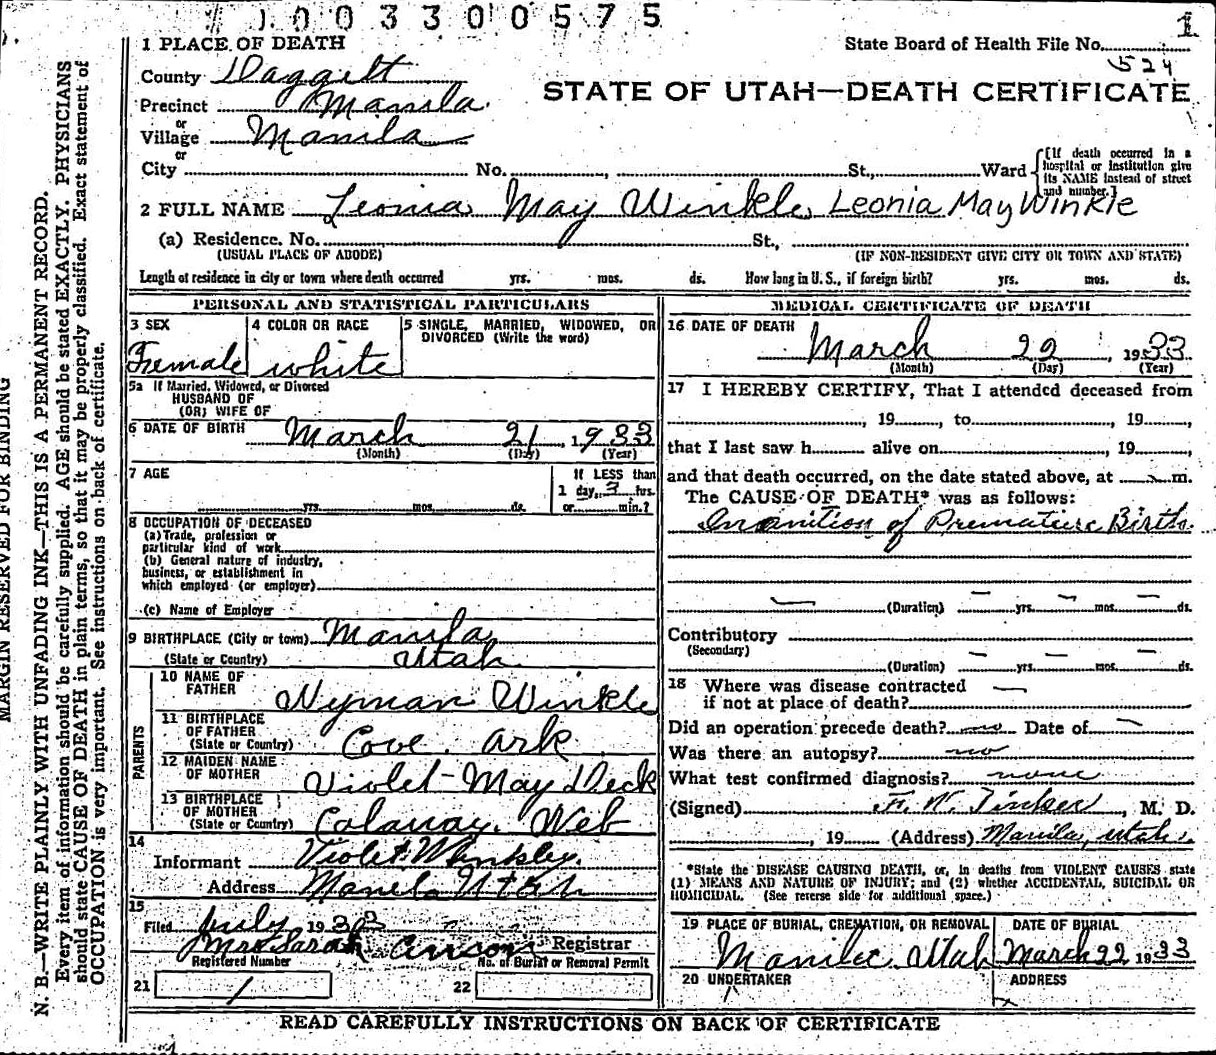 1003300575
1
1 PLACE OF DEATH
State Board of Health File No.
524
County Daggett
STATE OF UTAH—DEATH CERTIFICATE
Precinct Manila
or
Village Manila
or
City No. , St., Ward
(If death occurred in a hospital or institution give its NAME instead of street and number.)
2 FULL NAME Leonia May Winkle Leonia May Winkle
(a) Residence. No. St.,
(USUAL PLACE OF ABODE) (IF NON-RESIDENT GIVE CITY OR TOWN AND STATE)
Length of residence in city or town where death occurred yrs. mos. ds. How long in U. S., if foreign birth? yrs. mos. ds.
PERSONAL AND STATISTICAL PARTICULARS
3 SEX
Female
4 COLOR OR RACE
white
5 SINGLE, MARRIED, WIDOWED, OR DIVORCED (Write the word)
5a If Married, Widowed, or Divorced
HUSBAND OF
(OR) WIFE OF
6 DATE OF BIRTH March 21, 1933
(Month) (Day) (Year)
7 AGE
yrs. mos. ds.
If LESS than
1 day, 3 hrs.
or min.?
8 OCCUPATION OF DECEASED
(a) Trade, profession or
particular kind of work
(b) General nature of industry,
business, or establishment in
which employed (or employer)
(c) Name of Employer
9 BIRTHPLACE (City or town) Manila
(State or Country) Utah
PARENTS
10 NAME OF
FATHER Nyman Winkle
11 BIRTHPLACE
OF FATHER
(State or Country) Cove. Ark.
12 MAIDEN NAME
OF MOTHER Violet May Deck
13 BIRTHPLACE
OF MOTHER
(State or Country) Neb
14
Informant Violet Winkley.
Address Manila Utah
15
Filed July 193
Mrs Sarah Anson Registrar
Registered Number No. of Burial or Removal Permit
21 1 22
MEDICAL CERTIFICATE OF DEATH
16 DATE OF DEATH
March 22, 1933
(Month) (Day) (Year)
17 I HEREBY CERTIFY, That I attended deceased from
, 19 , to , 19 ,
that I last saw h alive on , 19 ,
and that death occurred, on the date stated above, at m.
The CAUSE OF DEATH* was as follows:
Inanition of Premature Birth
(Duration) yrs. mos. ds.
Contributory
(Secondary)
(Duration) yrs. mos. ds.
18 Where was disease contracted
if not at place of death?
Did an operation precede death? no Date of
Was there an autopsy? no
What test confirmed diagnosis? none
(Signed) F. W. Tinker, M. D.
, 19 (Address) Manila, Utah.
*State the DISEASE CAUSING DEATH, or, in deaths from VIOLENT CAUSES state
(1) MEANS AND NATURE OF INJURY; and (2) whether ACCIDENTAL, SUICIDAL OR
HOMICIDAL. (See reverse side for additional space.)
19 PLACE OF BURIAL, CREMATION, OR REMOVAL
Manila Utah
DATE OF BURIAL
March 22, 1933
20 UNDERTAKER
ADDRESS
READ CAREFULLY INSTRUCTIONS ON BACK OF CERTIFICATE
MARGIN RESERVED FOR BINDING
N. B.—WRITE PLAINLY WITH UNFADING INK—THIS IS A PERMANENT RECORD.
Every item of information should be carefully supplied. AGE should be stated EXACTLY. PHYSICIANS
should state CAUSE OF DEATH in plain terms, so that it may be properly classified. Exact statement of
OCCUPATION is very important. See instructions on back of certificate.